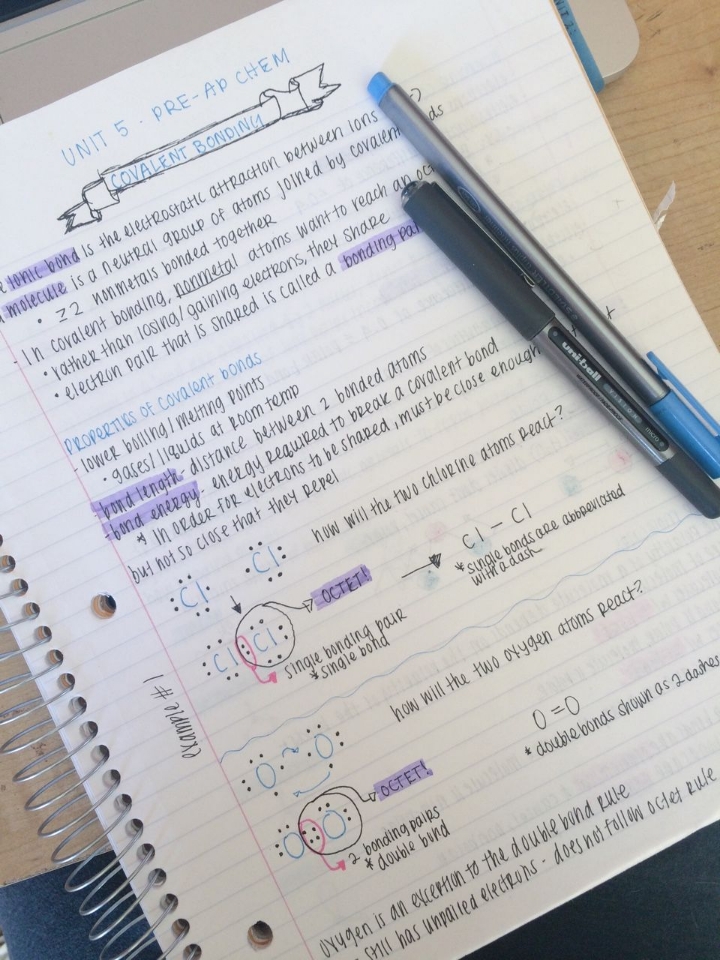 UNIT 5 · PRE-AP CHEM
COVALENT BONDING
ionic bond is the electrostatic attraction between ions
molecule is a neutral group of atoms joined by covalent
• ≥2 nonmetals bonded together
- In covalent bonding, nonmetal atoms want to reach an
• rather than losing/gaining electrons, they share
• electron pair that is shared is called a bonding
PROPERTIES OF COVALENT BONDS
- lower boiling/melting points
• gases/liquids at room temp
- bond length - distance between 2 bonded atoms
- bond energy - energy required to break a covalent bond
* In order for electrons to be shared, must be close enough
but not so close that they repel
how will the two chlorine atoms react?
Cl Cl
OCTET!
Cl - Cl
* single bonds are abbreviated
with a dash
Cl Cl
single bonding pair
* single bond
example #1
how will the two oxygen atoms react?
O O
O=O
* double bonds shown as 2 dashes
OCTET!
O O
2 bonding pairs
* double bond
oxygen is an exception to the double bond rule
still has unpaired electrons - does not follow octet rule
uni-ball